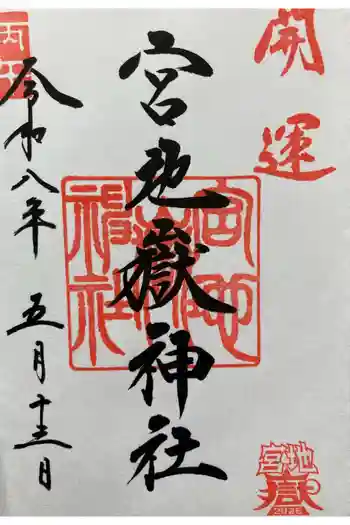 開運
宮地嶽神社
宮地嶽神社
丙午
令和八年 五月十三日
宮地
嶽
2026